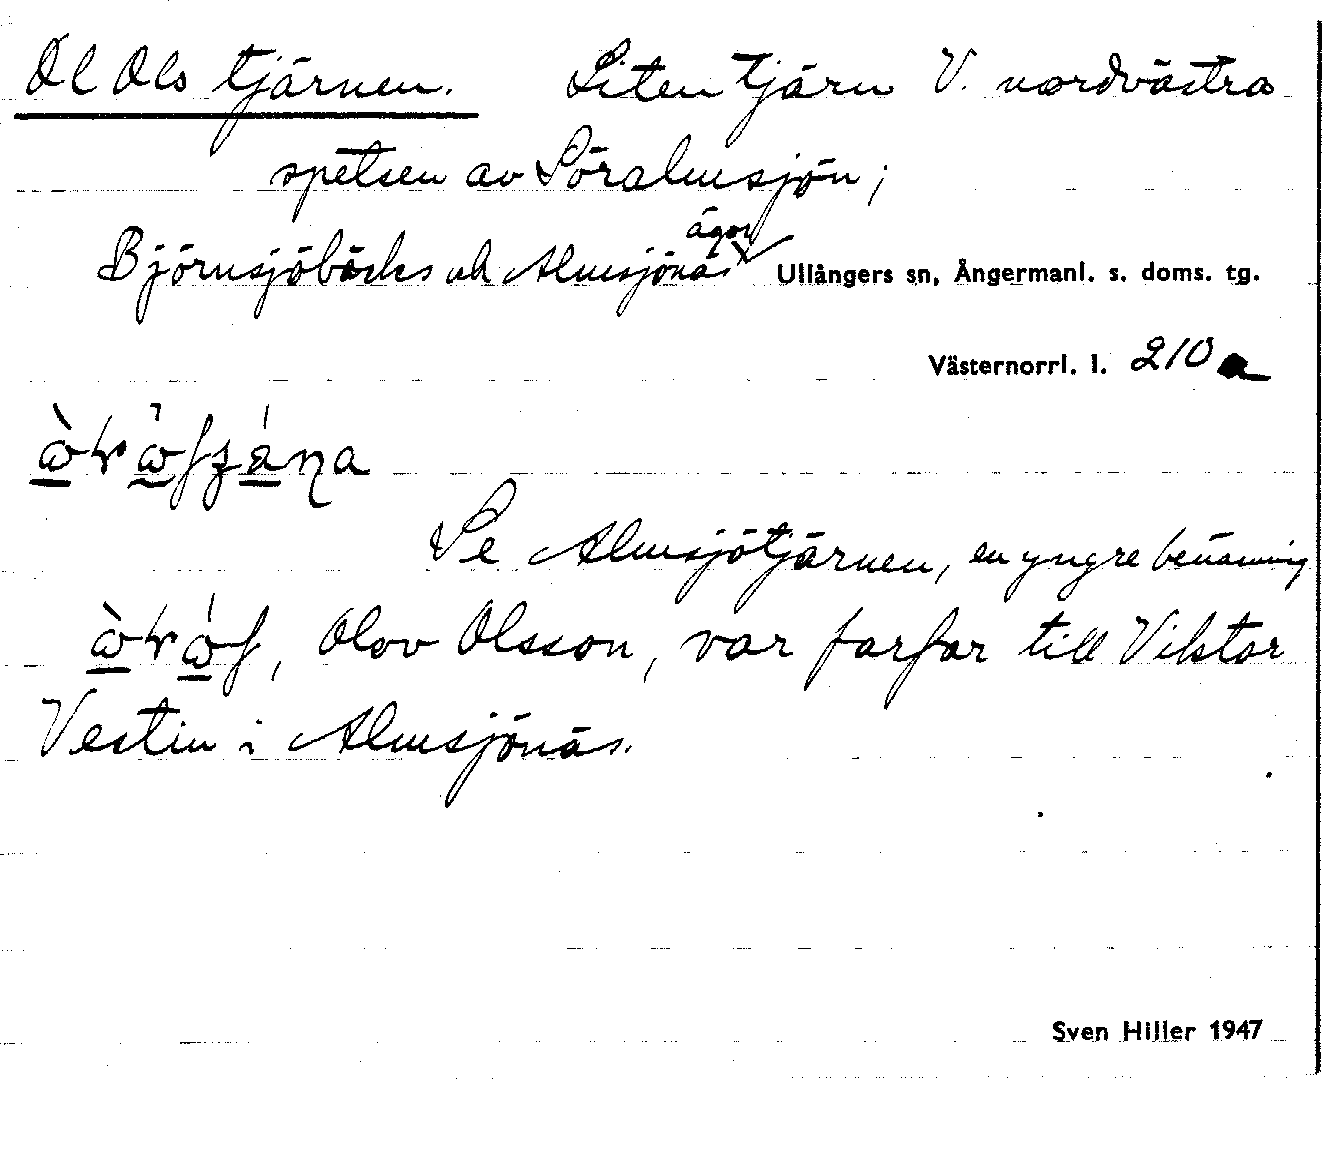 Ol Ols tjärnen. Liten tjärn V. nordvästra
spetsen av Söralmsjön;
ägor
Björnsjöbäcks och Almsjönäs Ullångers sn, Ångermanl. s. doms. tg.
Västernorrl. l. 210 a
Se Almsjötjärnen, en yngre benämning
Olov Olsson, var farfar till Viktor
Vestin i Almsjönäs.
Sven Hiller 1947